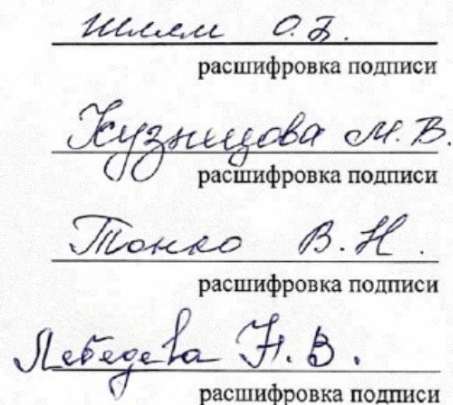 О.Б.
расшифровка подписи
Кузнецова М.В.
расшифровка подписи
Тонко В.Н.
расшифровка подписи
Лебедева Н.В.
расшифровка подписи